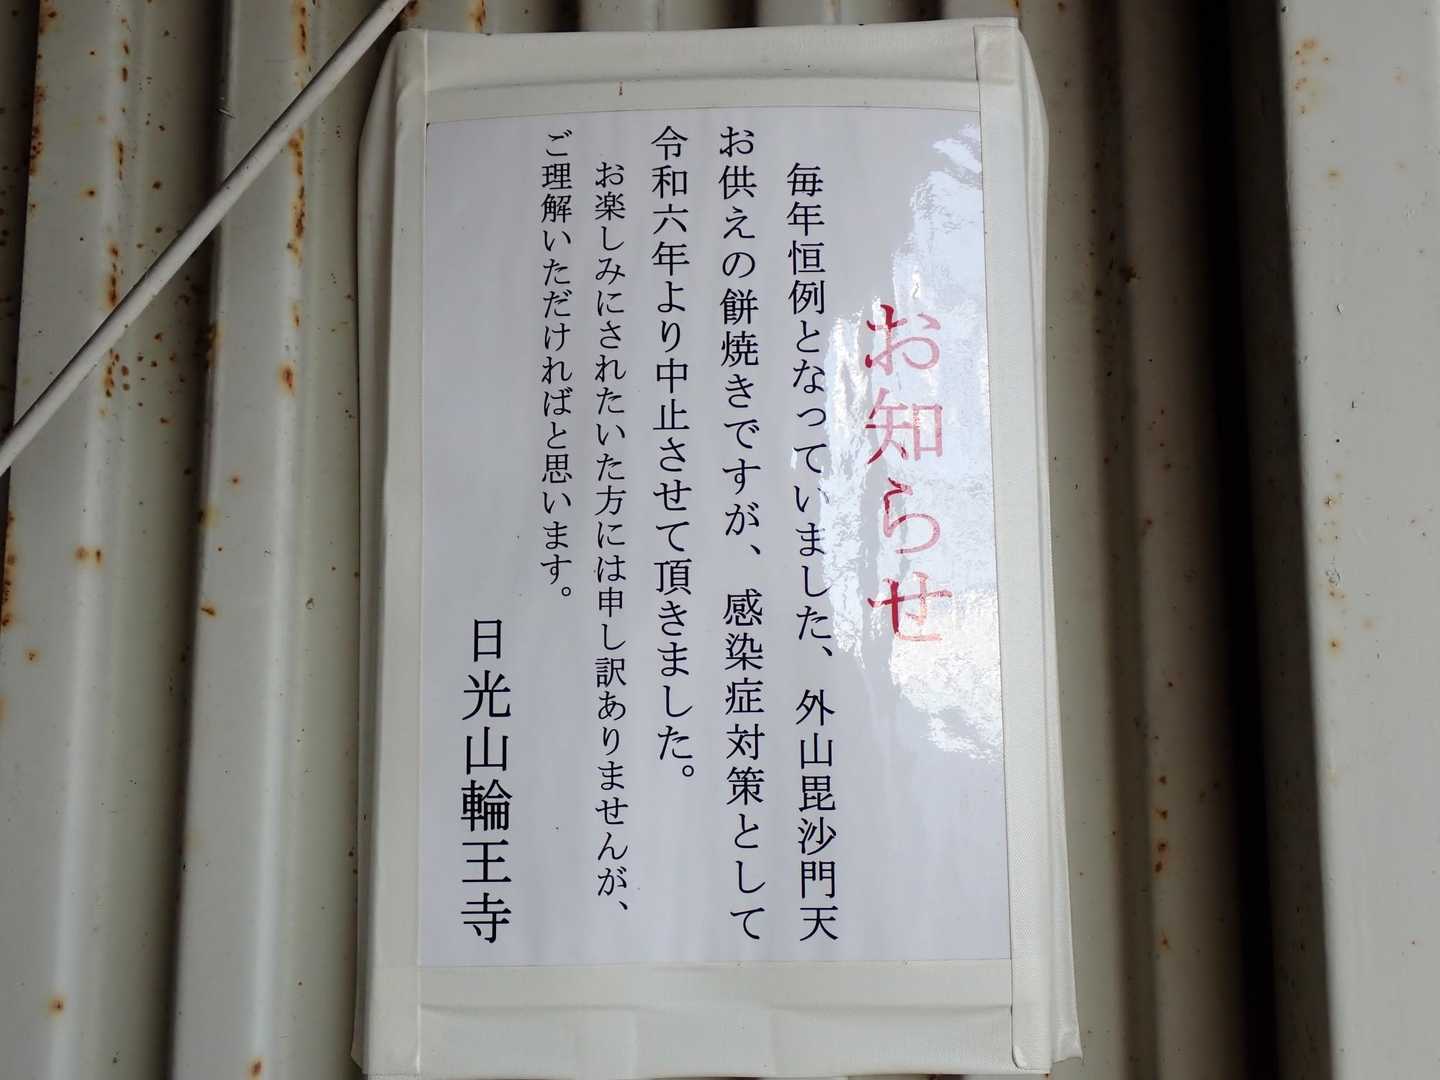 お知らせ
毎年恒例となっていました、外山毘沙門天
お供えの餅焼きですが、感染症対策として
令和六年より中止させて頂きました。
お楽しみにされたいた方には申し訳ありませんが、
ご理解いただければと思います。
日光山輪王寺